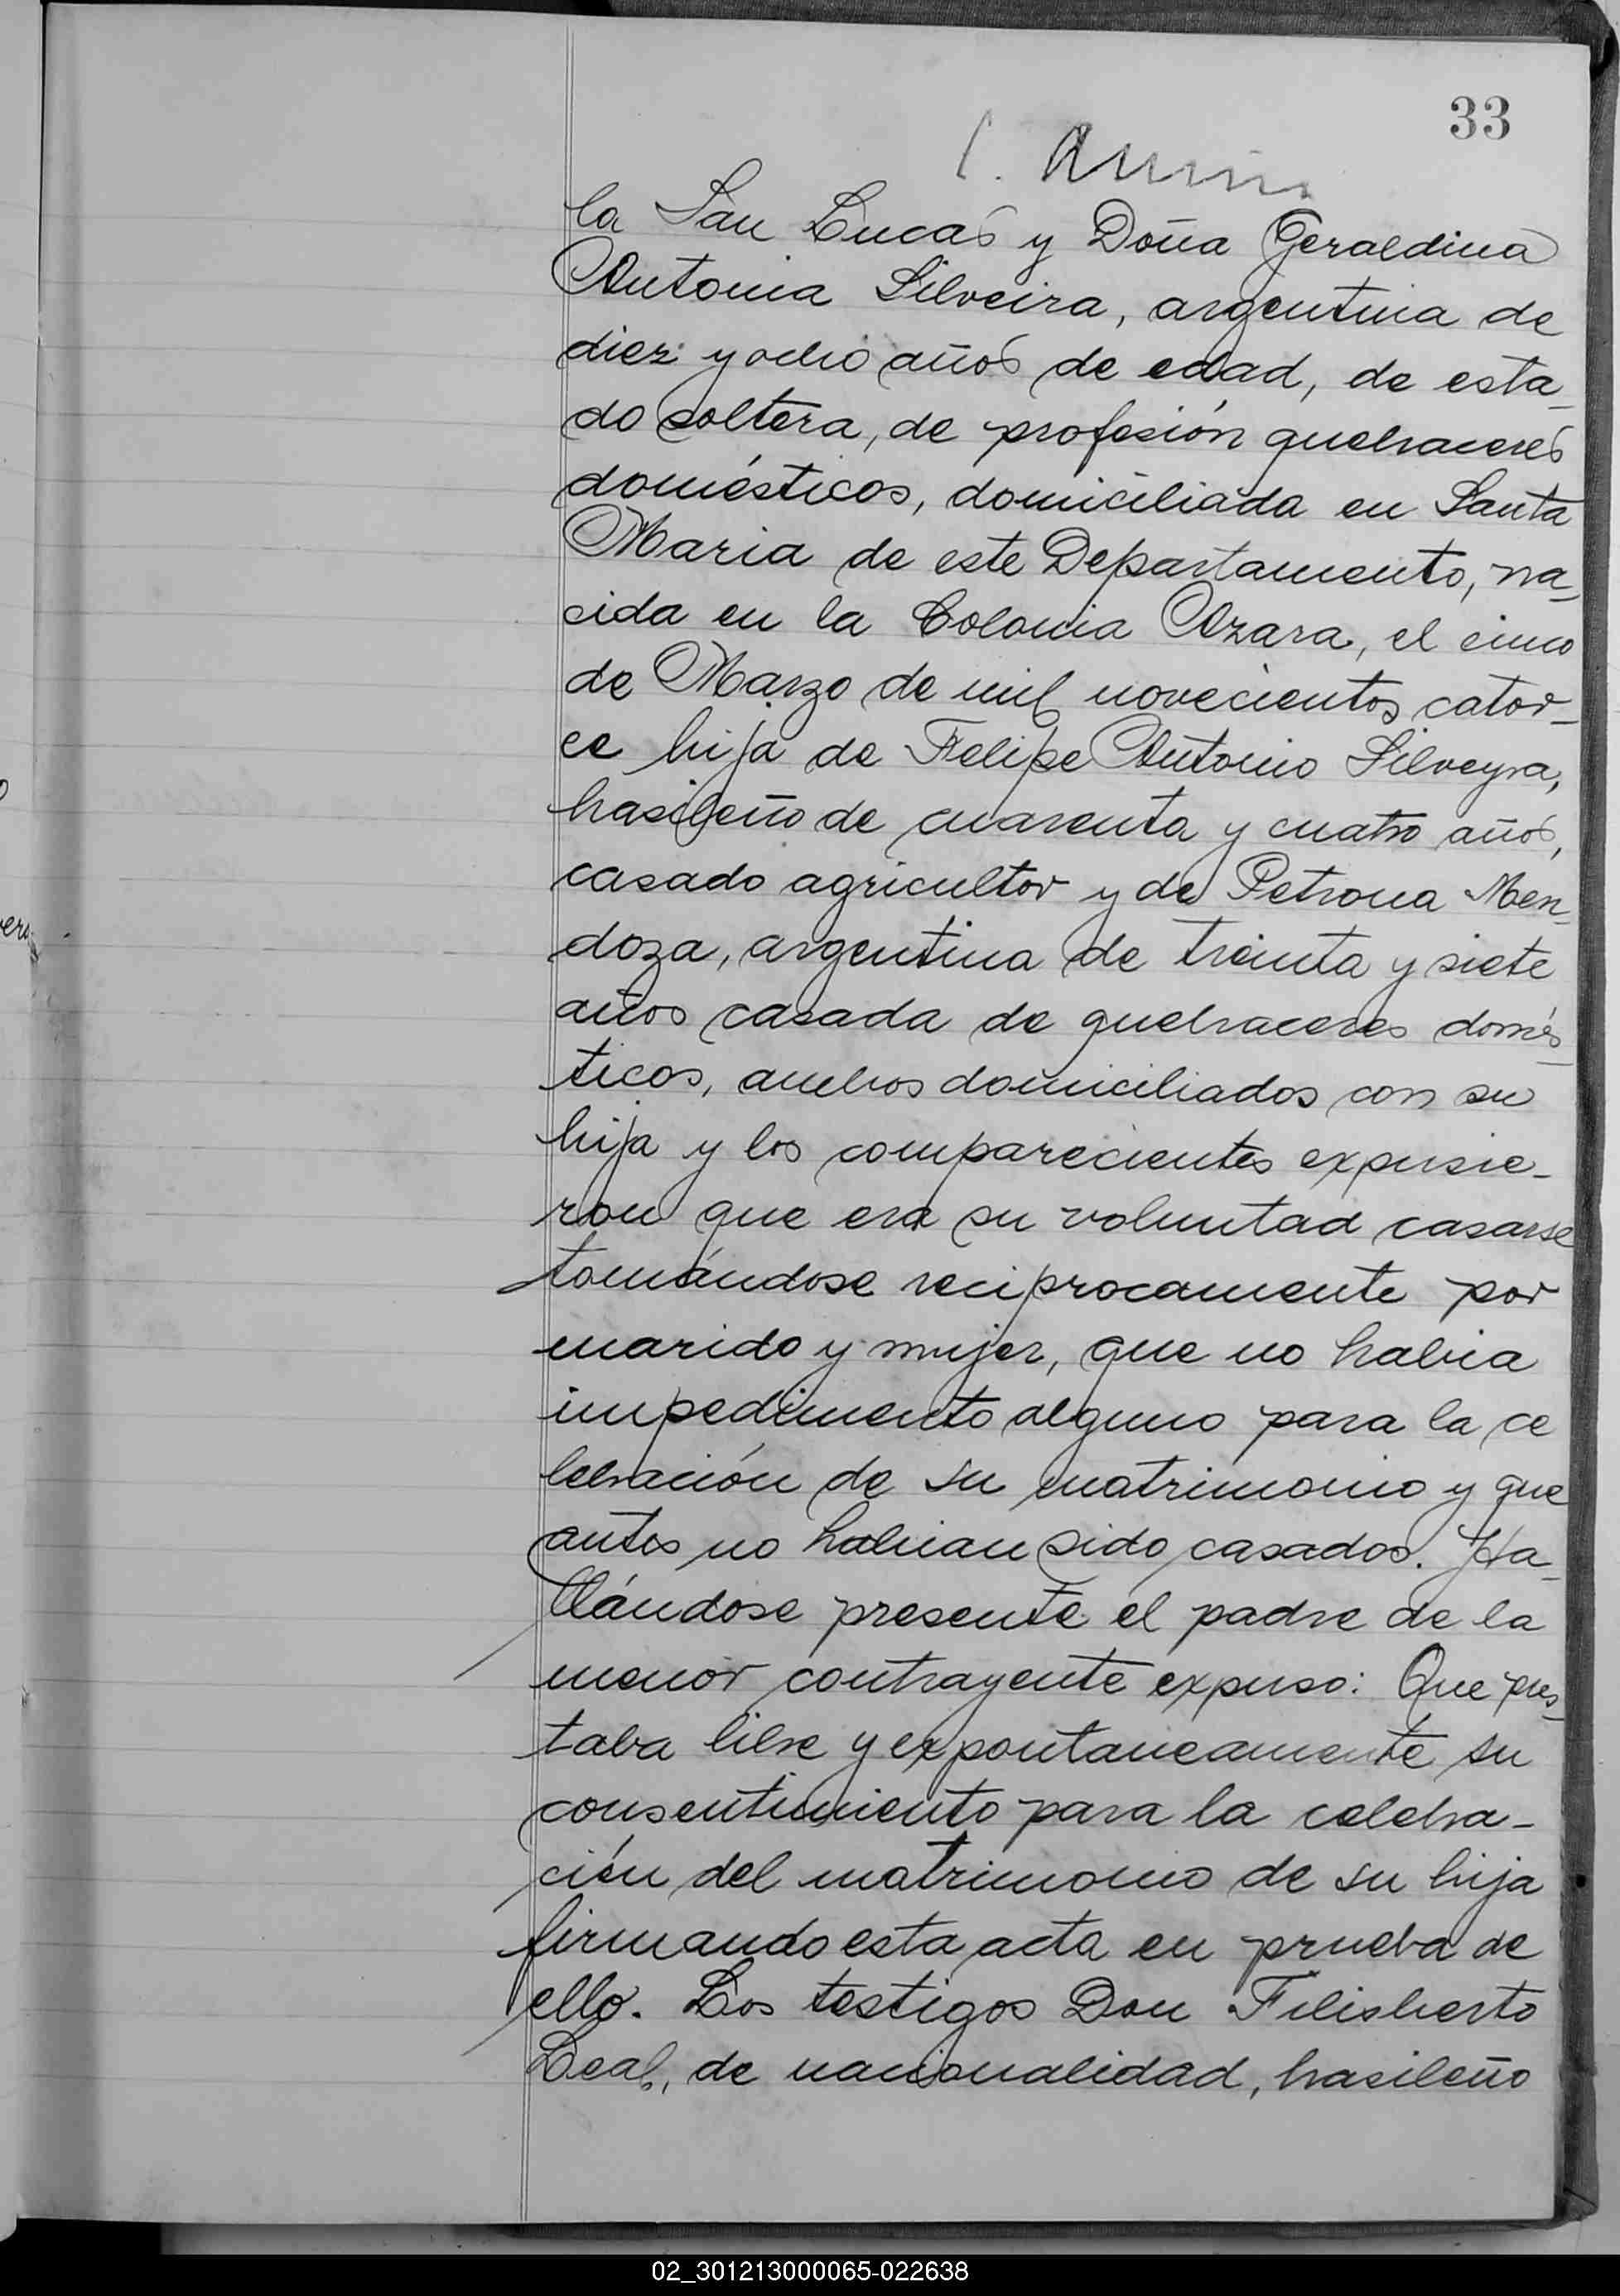 33
la San Lucas y Doña Geraldina
Antonia Silveira, argentina de
diez y ocho años de edad, de esta_
do soltera, de profesión quehaceres
domésticos, domiciliada en Santa
Maria de este Departamento, na_
cida en la Colonia Azara, el cinco
de Marzo de mil novecientos cator_
ce hija de Felipe Antonio Silveyra,
brasileño de cuarenta y cuatro años,
casado agricultor y de Petrona Men_
doza, argentina de treinta y siete
años casada de quehaceres domés_
ticos, ambos domiciliados con su
hija y los comparecientes expusie_
ron que era su voluntad casarse
tomándose reciprocamente por
marido y mujer, que no habia
impedimento alguno para la ce
lebración de su matrimonio y que
antes no habian sido casados. Ha_
llándose presente el padre de la
menor contrayente expuso: Que pres_
taba libre y expontaneamente su
consentimiento para la celebra_
ción del matrimonio de su hija
firmando esta acta en prueba de
ello. Los testigos Don Filisberto
Leal, de nacionalidad, brasileño
02_301213000065-022638